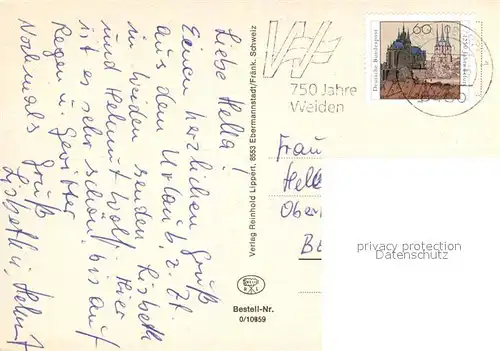 Liebe Hella!
Einen herzlichen Gruß
aus dem Urlaub, z. Zt.
in Weiden senden Lisbeth
und Helmut Wolf. Hier
ist es sehr schön, bis auf
Regen u. Gewitter.
Nochmals Gruß
Lisbeth u. Helmut
Verlag Reinhold Lippert, 8553 Ebermannstadt/Fränk. Schweiz
Bestell-Nr.
0/10859
750 Jahre
Weiden
Deutsche Bundespost
60
Frau
Ober
privacy protection